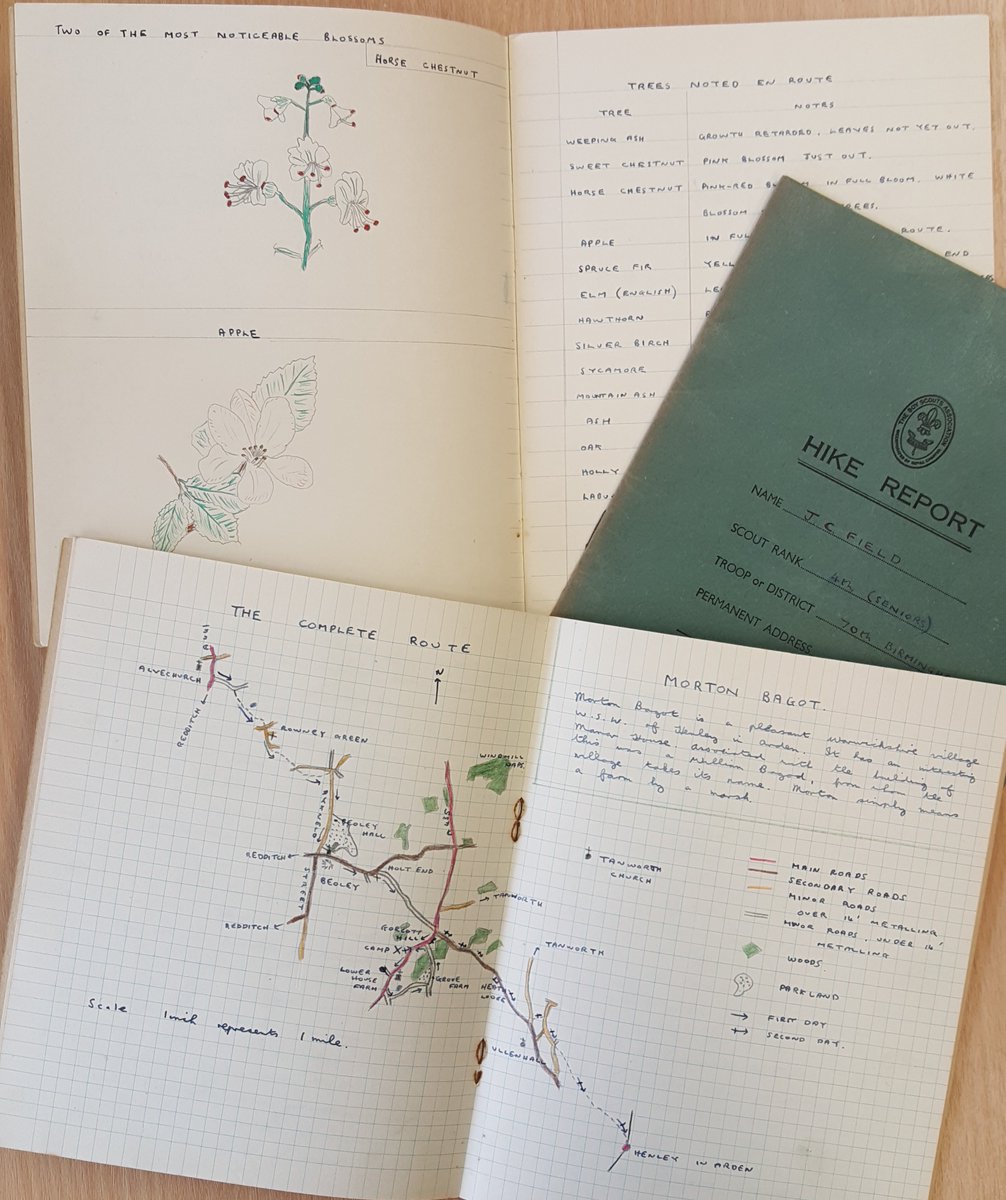 TWO OF THE MOST NOTICEABLE BLOSSOMS
HORSE CHESTNUT
APPLE
TREES NOTED EN ROUTE
TREE NOTES
WEEPING ASH GROWTH RETARDED. LEAVES NOT YET OUT.
SWEET CHESTNUT PINK BLOSSOM JUST OUT.
HORSE CHESTNUT PINK-RED IN FULL BLOOM. WHITE
BLOSSOM
APPLE IN ROUTE.
SPRUCE FIR END
ELM (ENGLISH)
HAWTHORN
SILVER BIRCH
SYCAMORE
MOUNTAIN ASH
ASH
OAK
HOLLY
THE BOY SCOUTS ASSOCIATION
HIKE REPORT
NAME J. C. FIELD
SCOUT RANK 4th (SENIORS)
TROOP or DISTRICT 70th
PERMANENT ADDRESS
THE COMPLETE ROUTE
N
ALVECHURCH
REDDITCH
ROWNEY GREEN
RYKNELD
STREET
BEOLEY
HALL
REDDITCH
BEOLEY
HOLT END
A435
WINDMILL
NAPS.
REDDITCH
TANWORTH
GORCOTT
HILL
CAMP
LOWER
HOUSE
FARM
GROVE
FARM
Scale 1 inch represents 1 mile.
MORTON BAGOT.
Morton Bagot is a pleasant Warwickshire village
W.S.W. of Henley in Arden. It has an interesting
Manor House. Associated with the building of
this was a William Bagod, from whom the
village takes its name. Morton simply means
a farm by a marsh.
TANWORTH
CHURCH
MAIN ROADS
SECONDARY ROADS
MINOR ROADS
OVER 14' METALLING
MINOR ROADS. UNDER 14'
METALLING
WOODS
PARKLAND
FIRST DAY
SECOND DAY.
TANWORTH
LODGE
ULLENHALL
HENLEY IN ARDEN